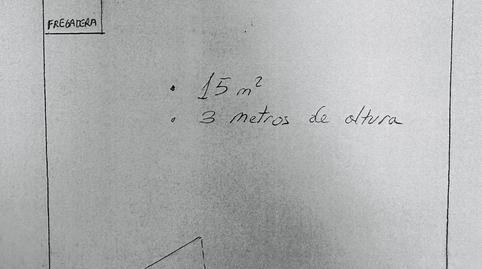 FREGADERA
• 15 m²
• 3 metros de altura